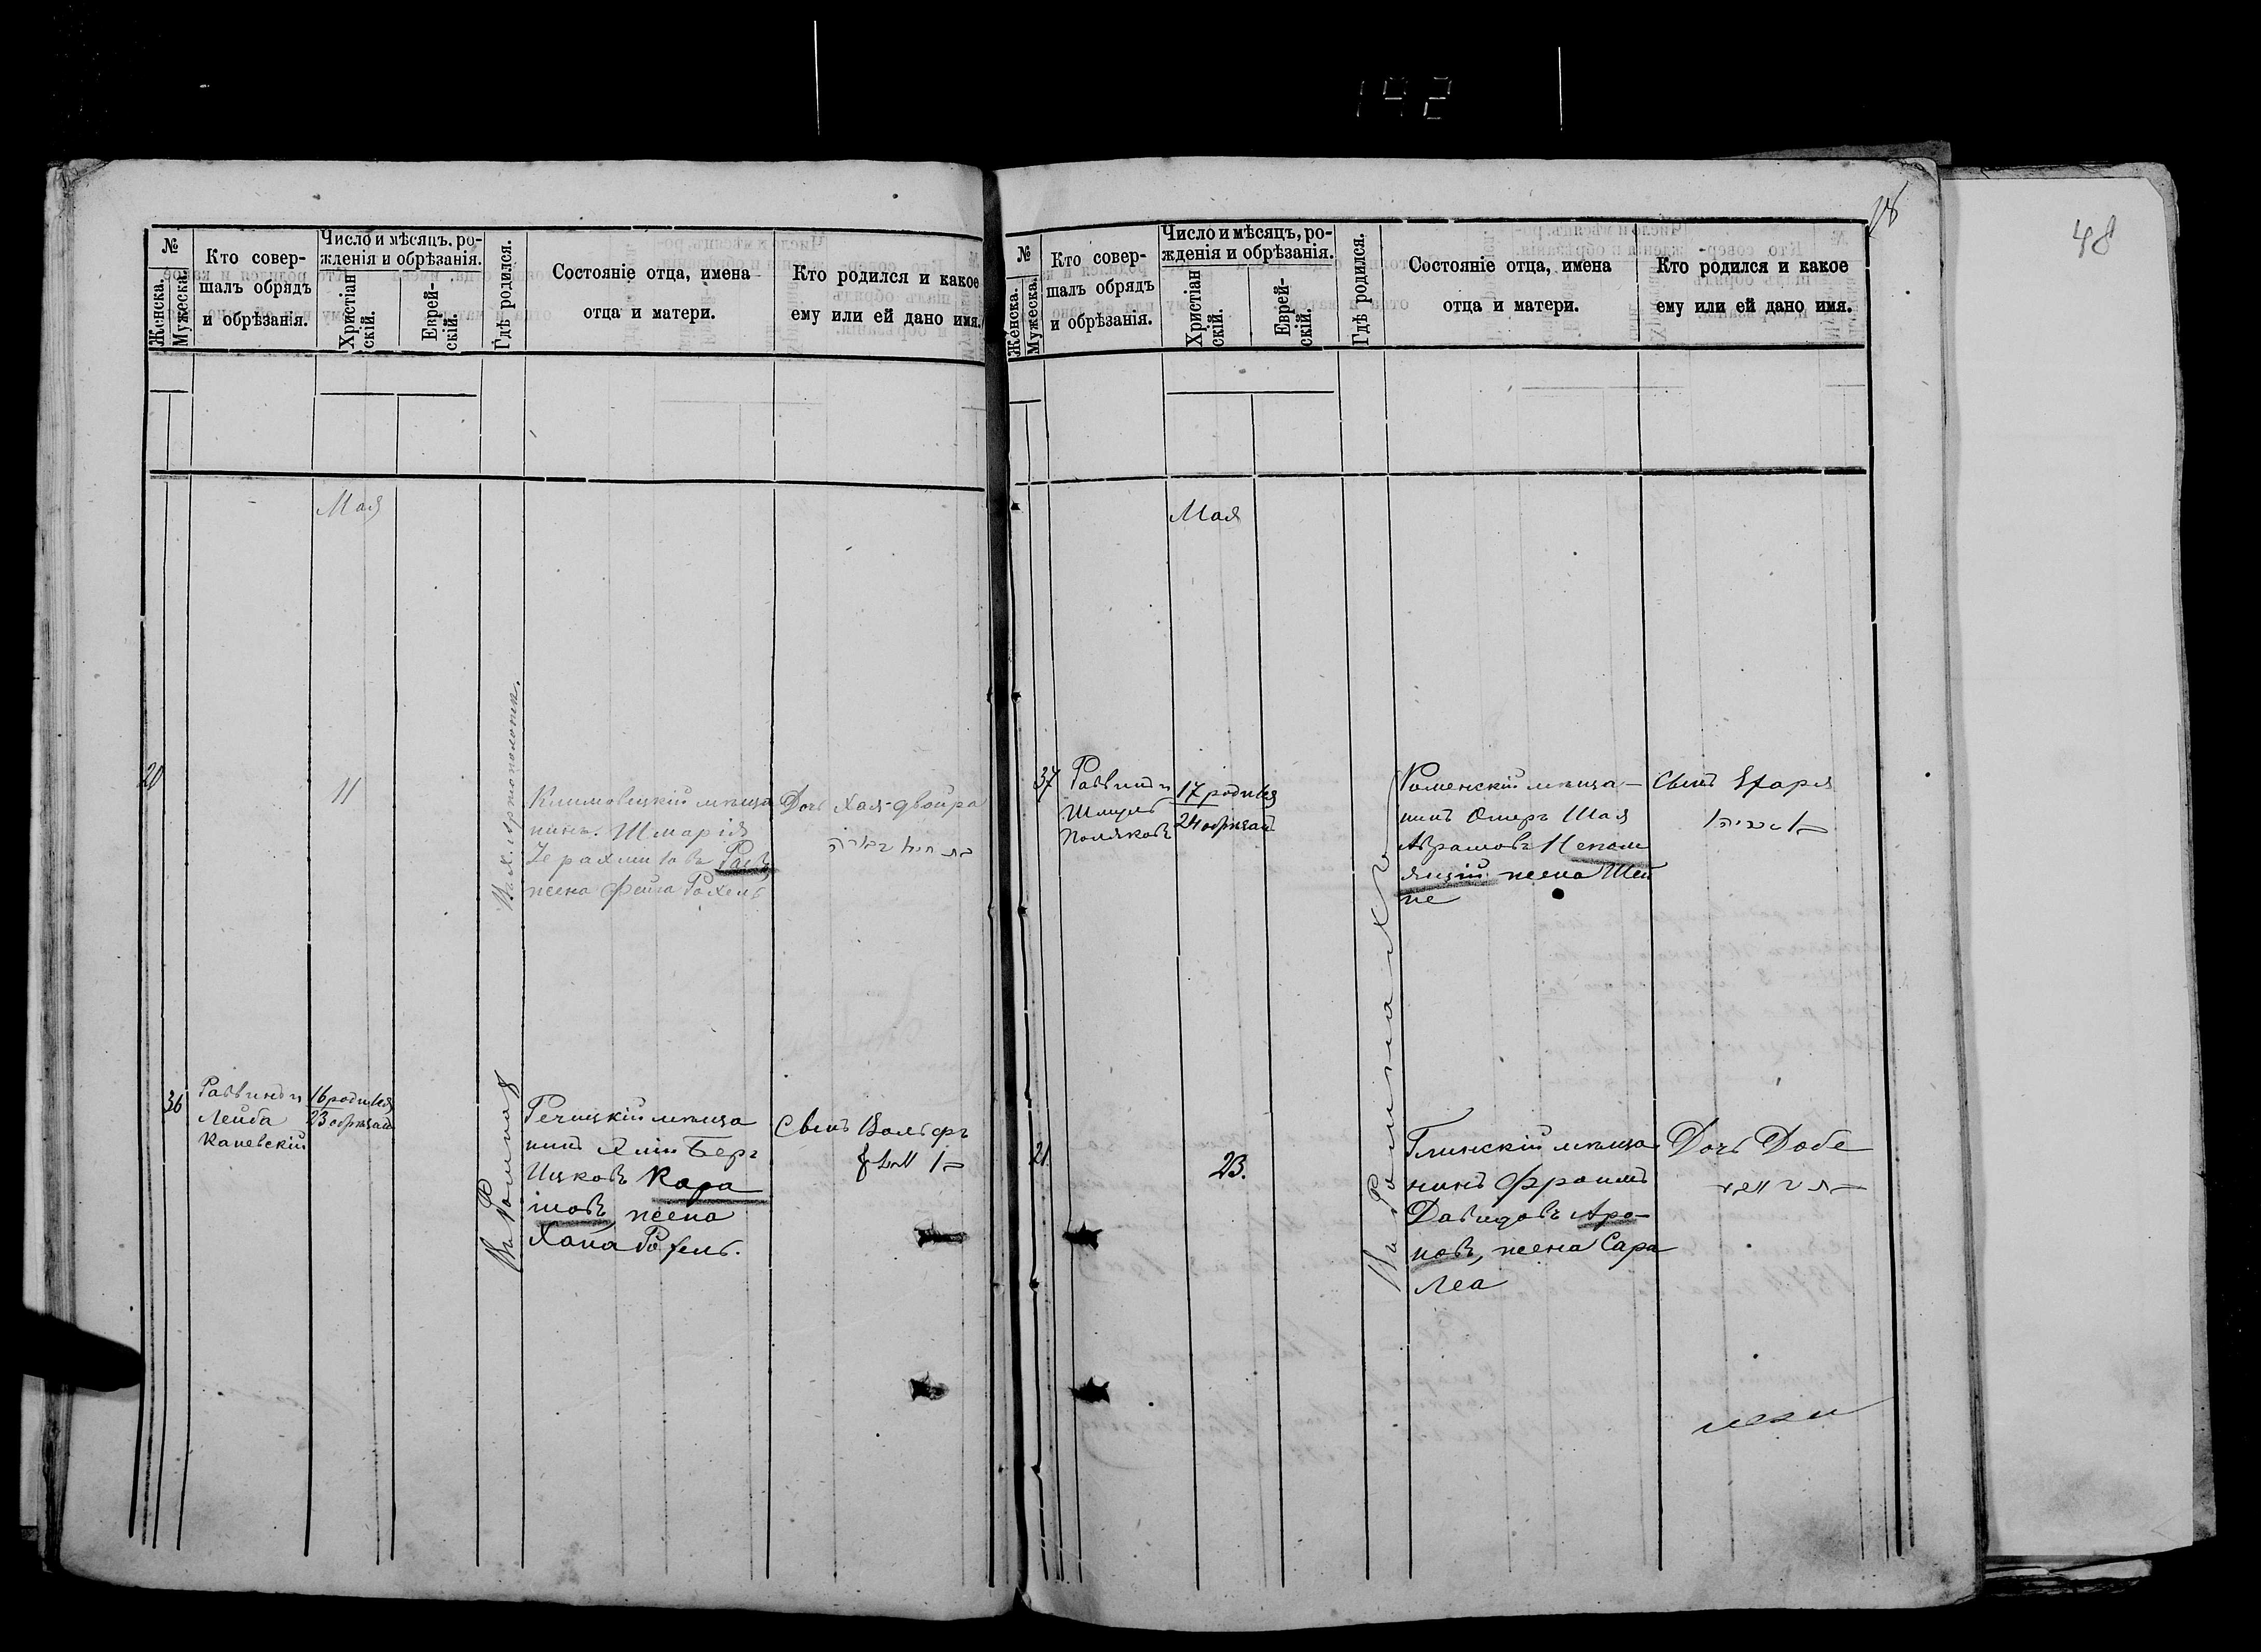 192
№
Женска.
Мужеска.
Кто совер-
шалъ обрядъ
и обрѣзанія.
Число и мѣсяцъ, ро-
жденія и обрѣзанія.
Христіан
скій.
Еврей-
скій.
Гдѣ родился.
Состояніе отца, имена
отца и матери.
Кто родился и какое
ему или ей дано имя.
Мая
20
11
Климовецкій мѣща
нинъ Шмарія
жена Фейга Рохель
Дочь Хая-Двойра
36
Раввинъ и
Лейба
Каневскій
16 родился
23 обрѣзанъ
Въ Ромнах
Речицкій мѣща
нинъ Хаим Беръ
Ицковъ Кара
шовъ, жена
Хана Рохель.
Сынъ Вольфъ
№
Женска.
Мужеска.
Кто совер-
шалъ обрядъ
и обрѣзанія.
Число и мѣсяцъ, ро-
жденія и обрѣзанія.
Христіан
скій.
Еврей-
скій.
Гдѣ родился.
Состояніе отца, имена
отца и матери.
Кто родился и какое
ему или ей дано имя.
48
Мая
37
Раввинъ и
Шмуль
Поляковъ
17 родился
24 обрѣзанъ
Въ Ромнахъ
Роменскій мѣща-
нинъ Шая
Аврамовъ Непом
нящій жена Шей
не
Сынъ
21
23.
Въ Ромнахъ
Глинскій мѣща
нинъ Фроимъ
Давидовъ Аро-
новъ, жена Сара
Леа
Дочь Добе